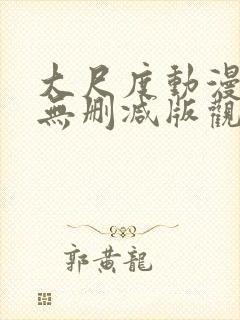 大尺度動漫
無刪減版觀
郭黄龍